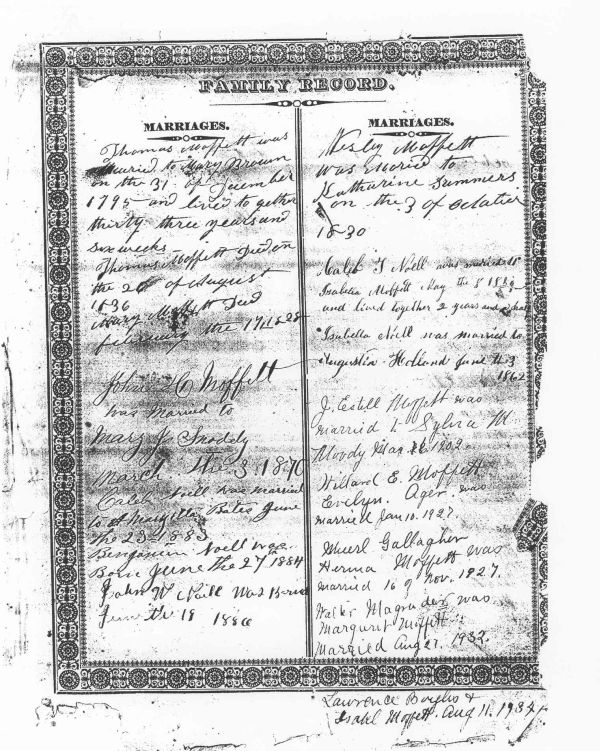 FAMILY RECORD.
MARRIAGES.
Thomas Moffett was
married to Mary Brown
on the 31 of December
1795 and lived to gether
thirty three years and
six weeks
Thomas Moffett Died on
the of August
1836
Mary Moffett Died
february the 17, 1828
John C Moffett
was Married to
Mary J Snoddy
March the 3 1870
Caleb Noell was married
to Bates June
the 23 1883
Benjamin Noell was
Born June the 27th 1884
John W Noell Was Born
June the 18 1886
MARRIAGES.
Wesley Moffett
was Maried to
Katharine Summers
on the 3 of octotier
1830
Caleb T Noell was married to
Isabella Moffett May the 8
and lived together 2 years and
Isabella Noell was married to
Augustin Holland June
1862
J. Estell Moffett was
married to Sylvia M.
Moody Mar. 1902.
Willard E. Moffett
Evelyn Ager was
married Jan 10. 1927.
Muerl Gallagher
Herma Moffett was
married 16 of Nov. 1927.
Magruder was
Margaret Moffett
Married Aug 27. 1932.
Lawrence &
Isabel Moffett. Aug 11. 1934